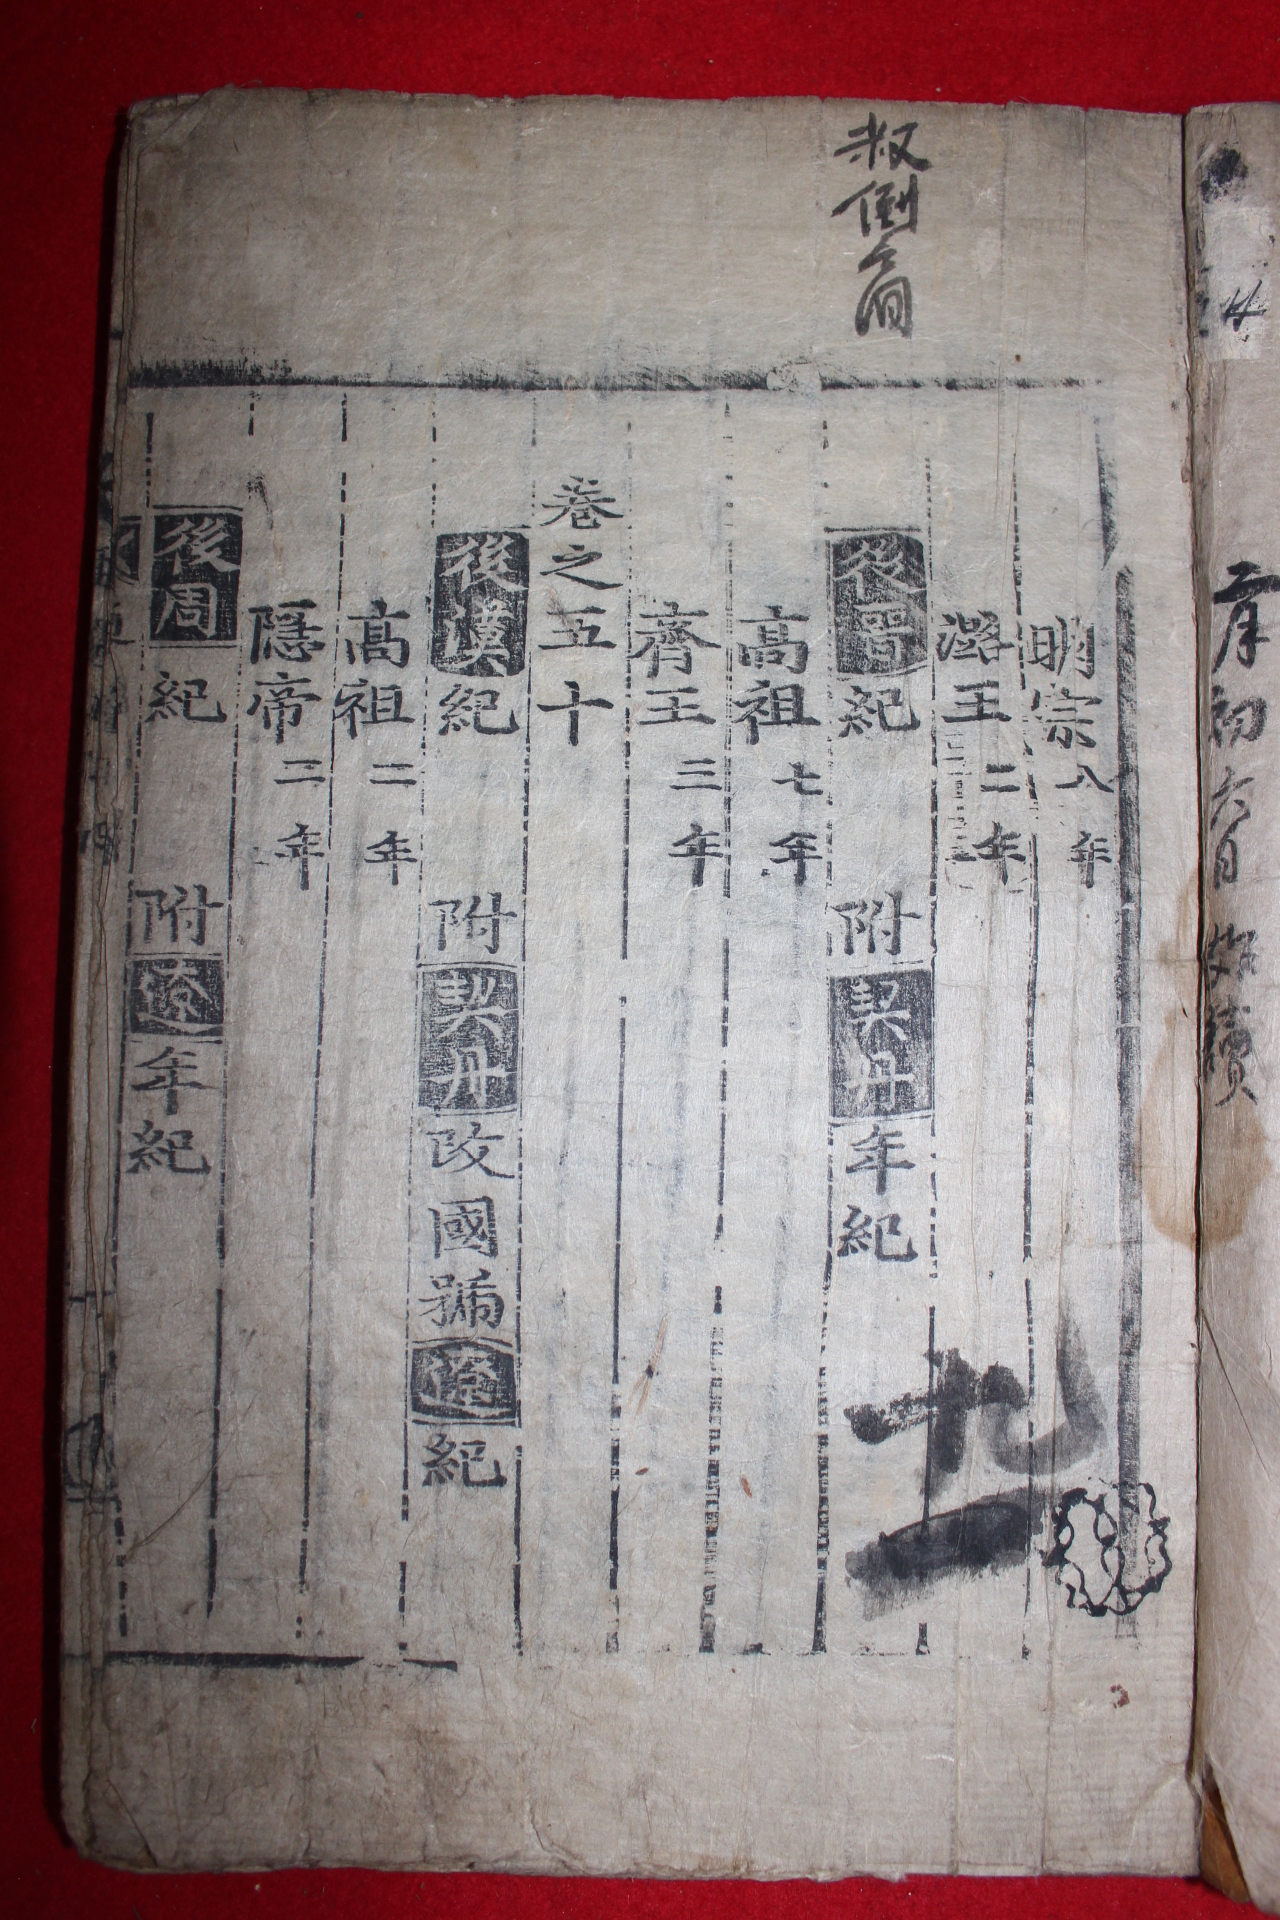 二月初六日始讀
明宗八年
潞王二年
後晉紀 附契丹年紀
高祖七年
齊王三年
卷之五十
後漢紀 附契丹改國號遼紀
高祖二年
隱帝二年
後周紀 附遼年紀
九
一